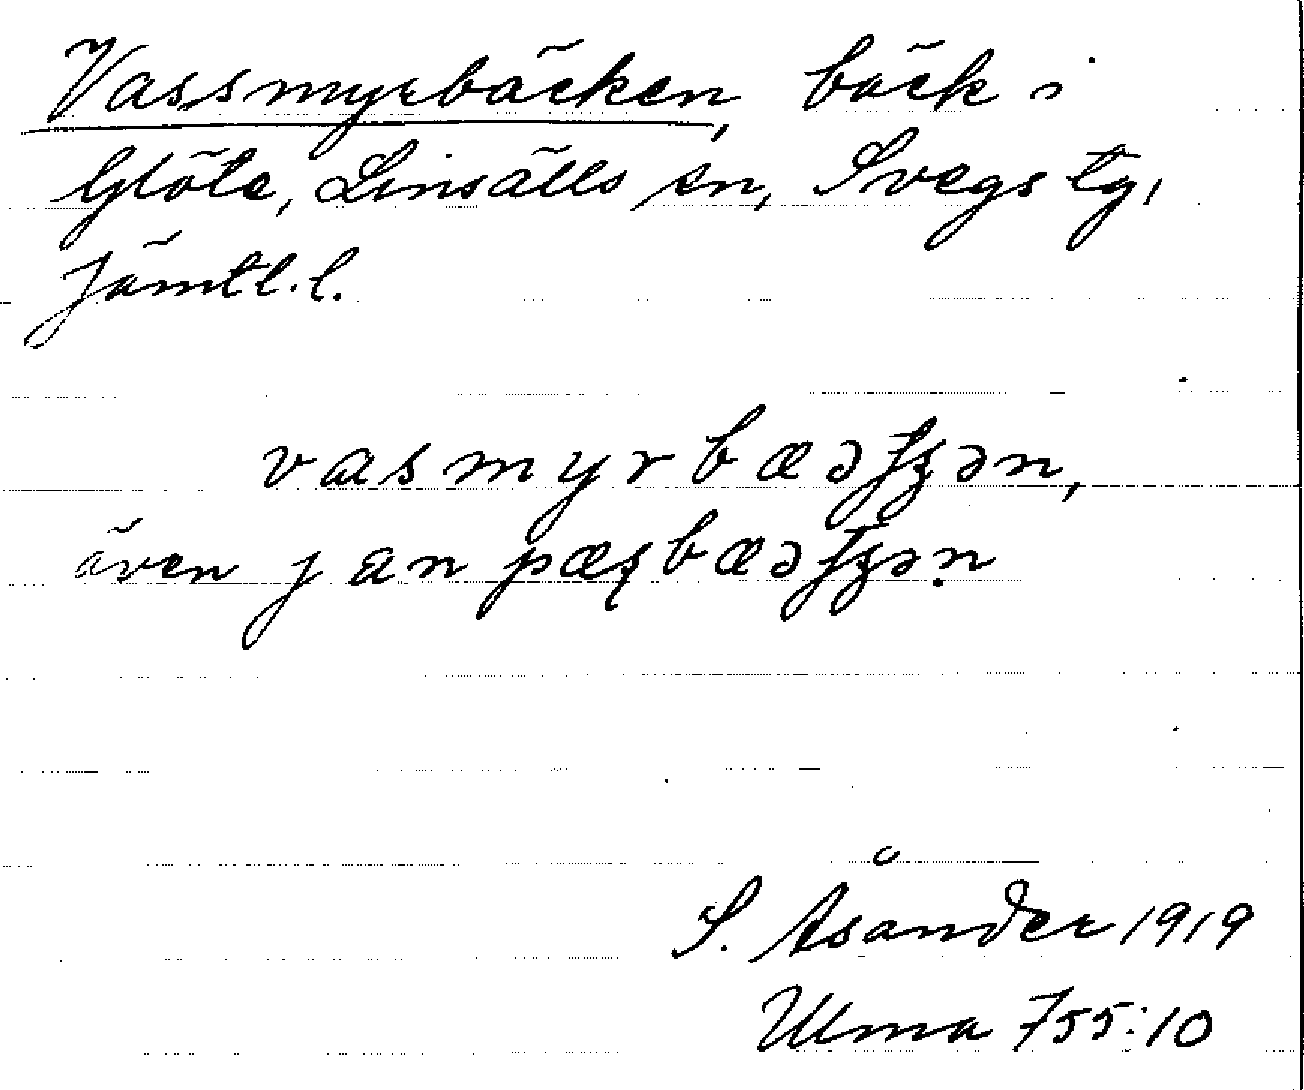 Vassmyrbäcken, bäck i
Glöte, Linsälls sn, Svegs tg,
Jämtl. l.
vasmyrbæəʃʒən,
även jan pæʂbæəʃʒəṇ
S. Åsander 1919
Ulma 755:10